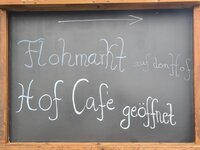 Flohmarkt auf dem Hof
Hof Cafe geöffnet